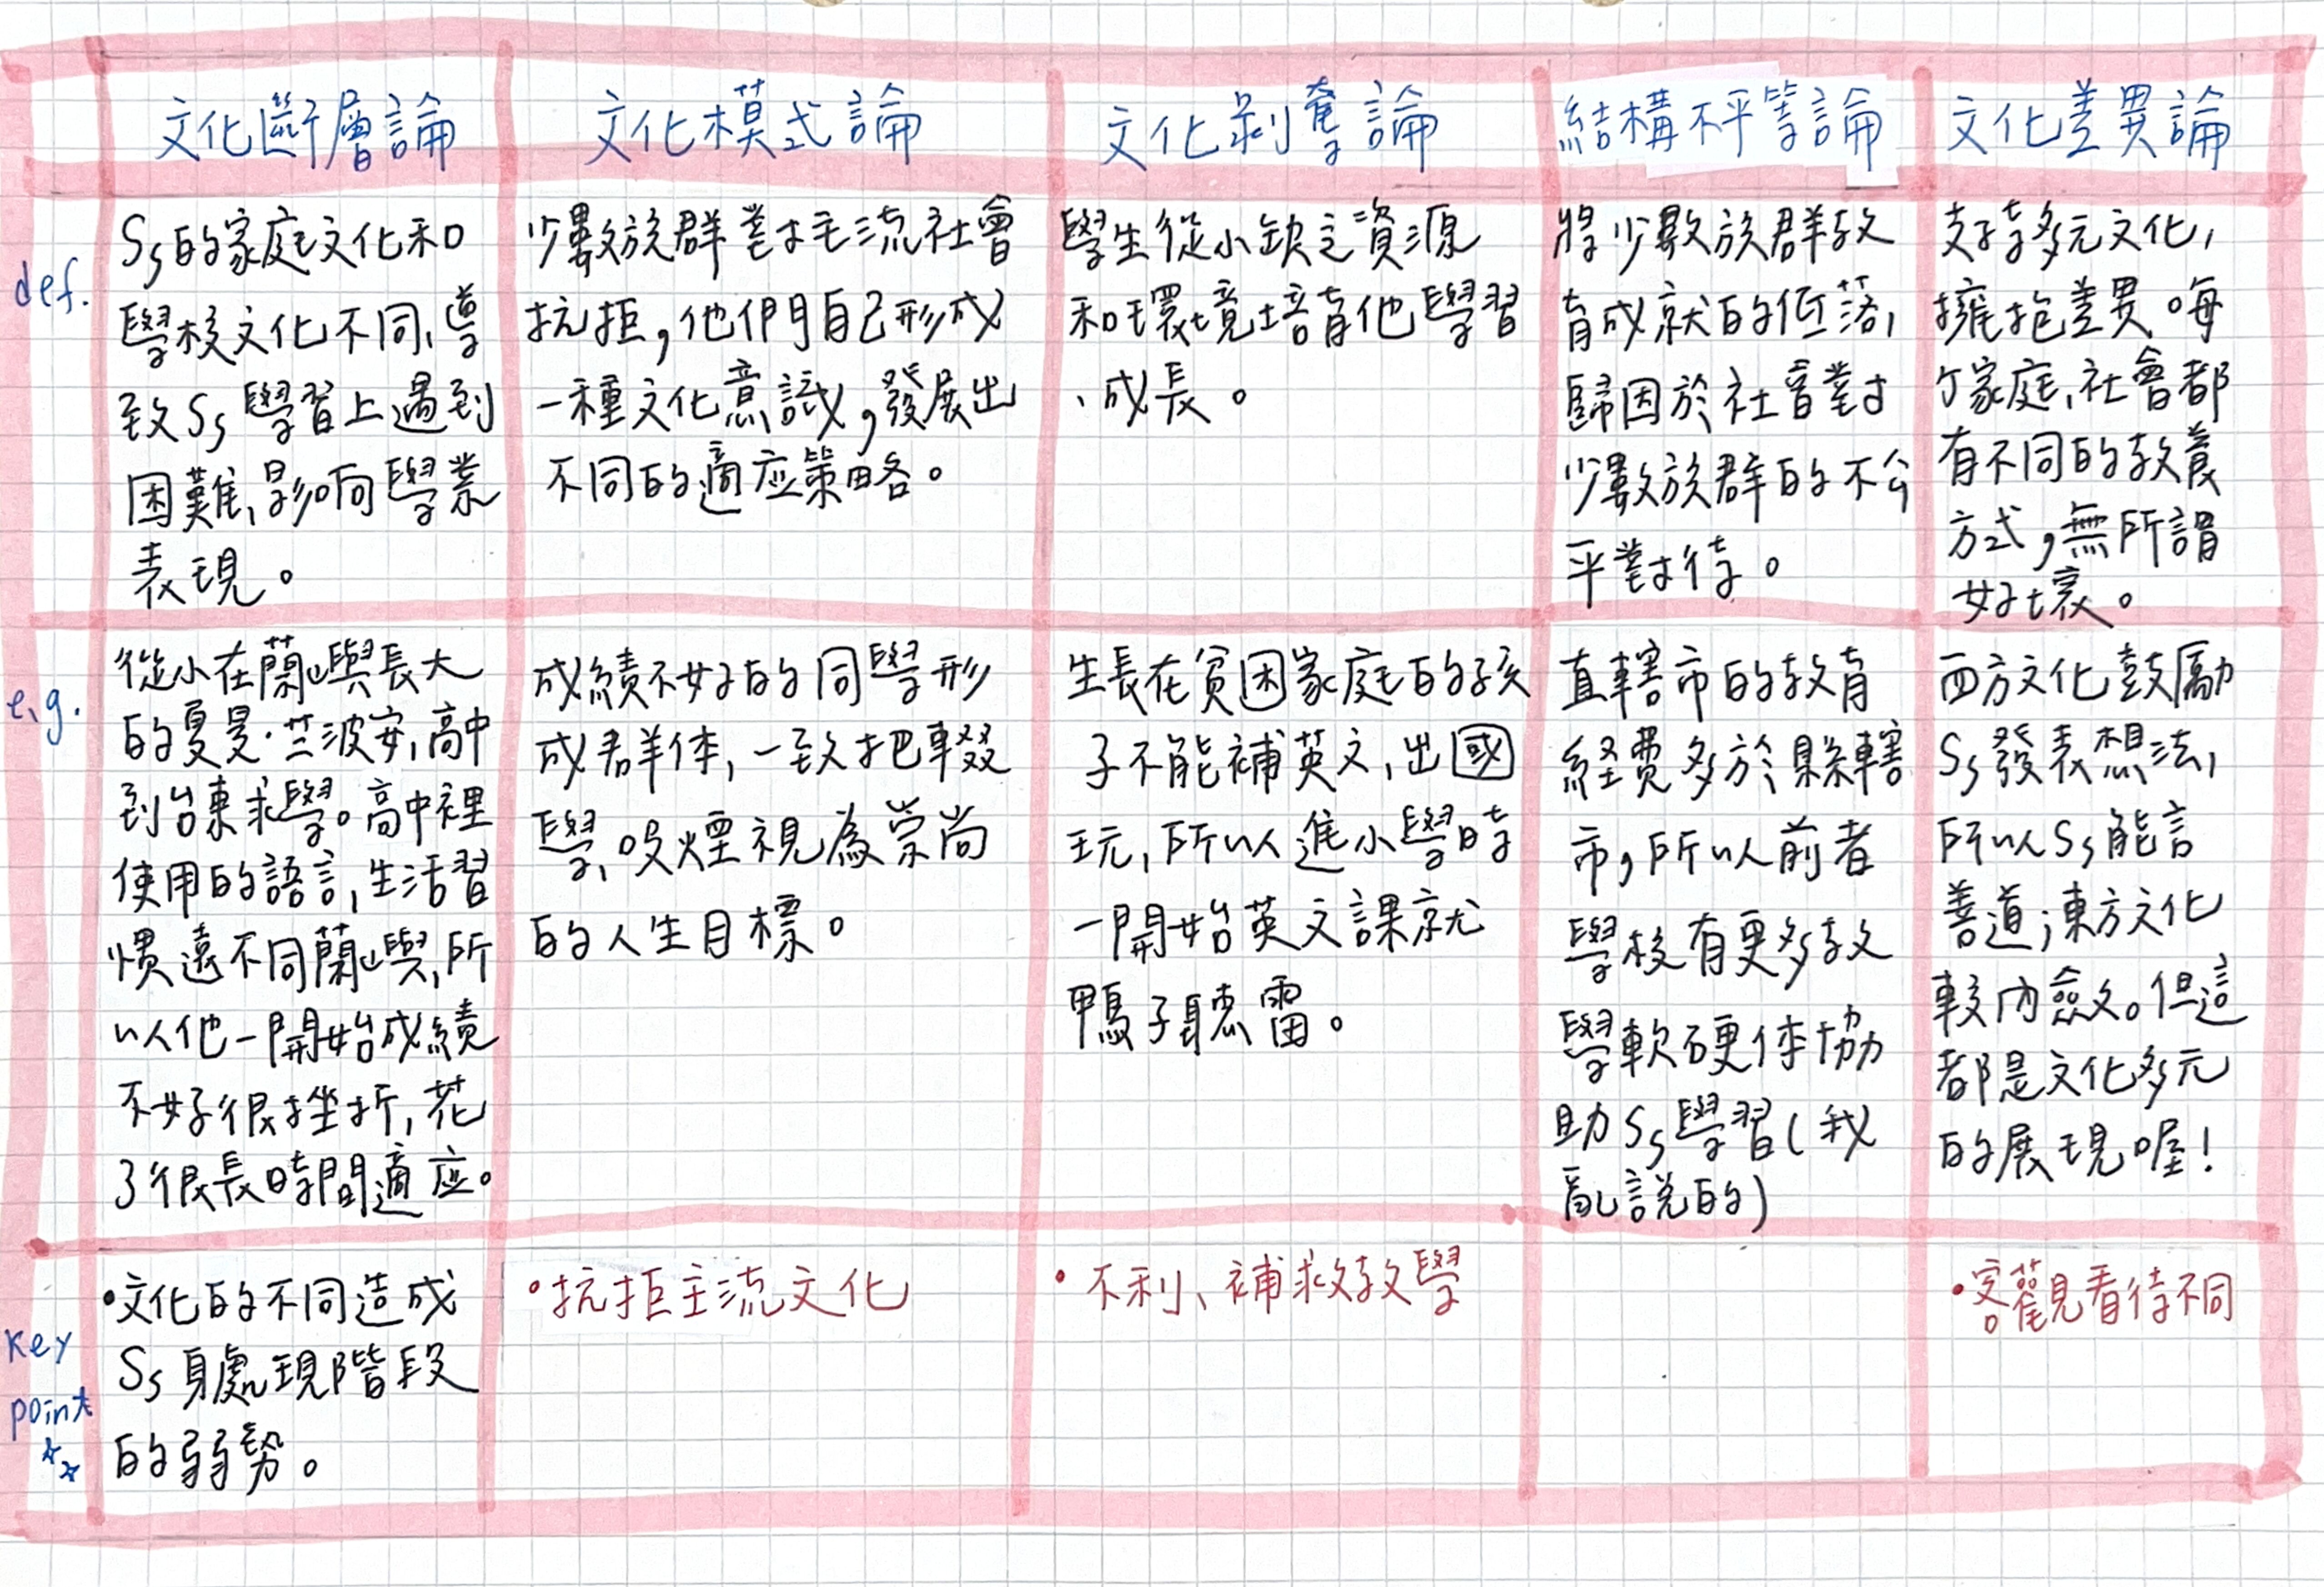 文化斷層論
文化模式論
文化剝奪論
結構不平等論
文化差異論
def.
Ss的家庭文化和
學校文化不同、導
致Ss學習上遇到
困難、影响學業
表現。
少數族群對主流社會
抗拒，他們自己形成
一種文化意識，發展出
不同的適应策略。
學生從小缺乏資源
和環境培育他學習
、成長。
將少數族群教
育成就的低落，
歸因於社會對
少數族群的不公
平對待。
支持多元文化，
擁抱差異。每
个家庭、社會都
有不同的教養
方式，無所謂
好壞。
e.g.
從小在蘭屿與長大
的夏曼·兰波安，高中
到台東求學。高中裡
使用的語言、生活習
慣遠不同蘭嶼，所
以他一開始成績
不好很挫折，花
了很長時間適应。
成績不好的同學形
成群体，一致把輟
學、吸煙視為崇尚
的人生目標。
生長在貧困家庭的孩
子不能補英文、出國
玩，所以進小學時
一開始英文課就
鴨子聽雷。
直轄市的教育
経費多於縣轄
市，所以前者
學校有更多教
學軟硬体協
助Ss學習(我
亂說的)
西方文化鼓勵
Ss發表想法，
所以Ss能言
善道；東方文化
較內斂。但這
都是文化多元
的展現喔！
key
point
☆☆
•文化的不同造成
Ss身處現階段
的弱勢。
•抗拒主流文化
•不利、補救教學
•客觀看待不同